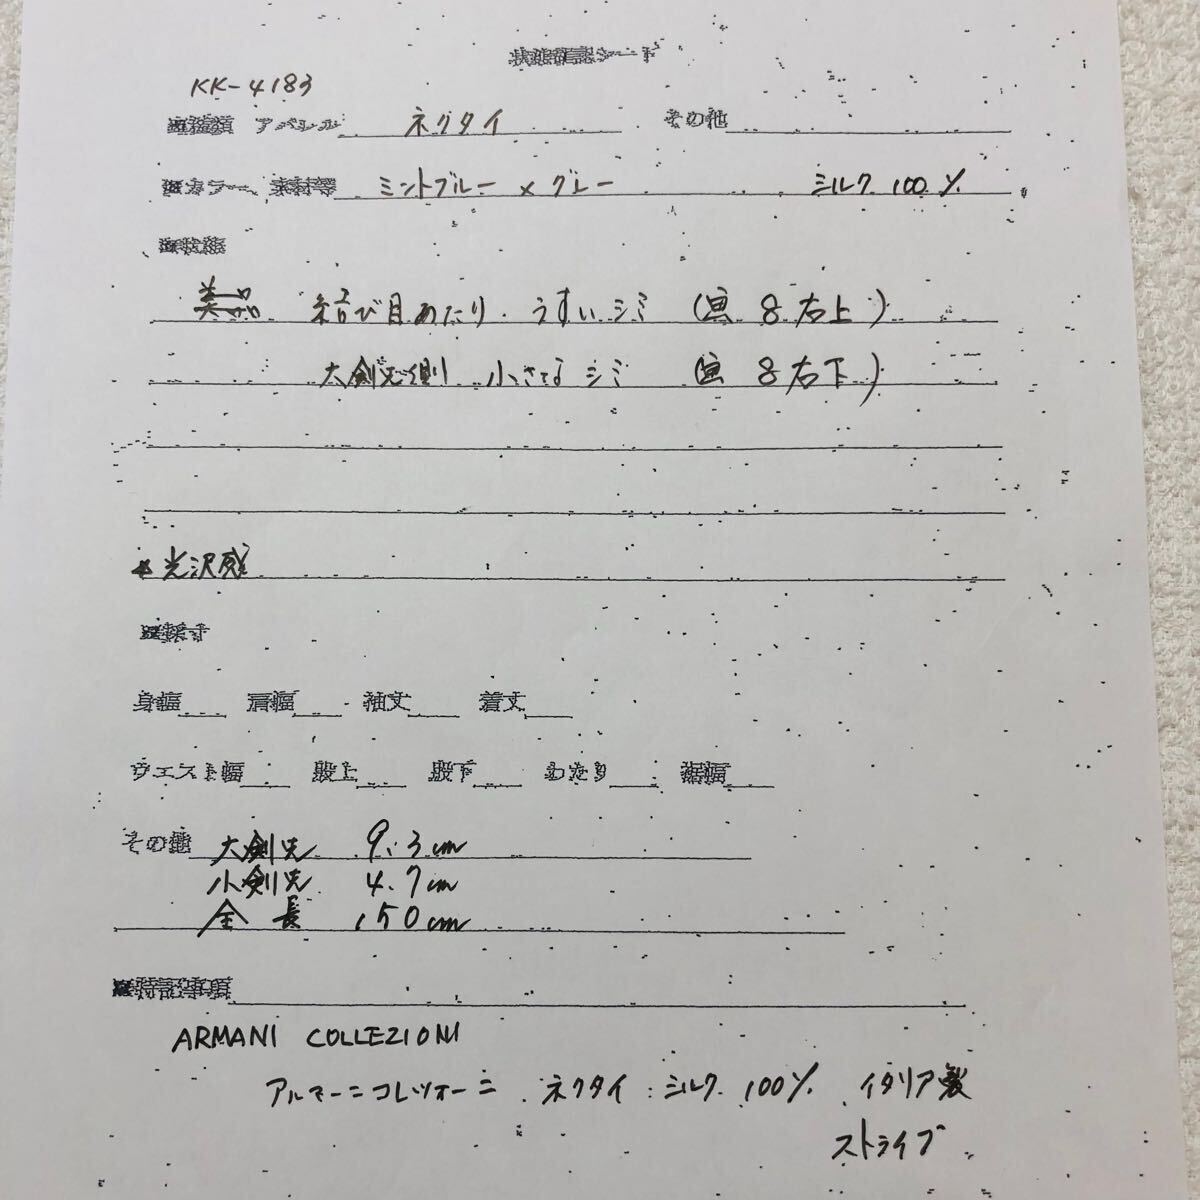 状態確認シート
KK-4183
■種類 アパレル ネクタイ その他
■カラー、素材等 ミントブルー × グレー シルク 100%
■状態
美品 結び目あたり うすいシミ (画 8 右上)
大剣先側 小さなシミ (画 8 右下)
光沢感
■採寸
身幅 肩幅 袖丈 着丈
ウエスト幅 股上 股下 わたり 裾幅
その他 大剣先 9.3cm
小剣先 4.7cm
全長 150cm
■特記事項
ARMANI COLLEZIONI
アルマーニコレツォーニ ネクタイ シルク 100% イタリア製
ストライプ